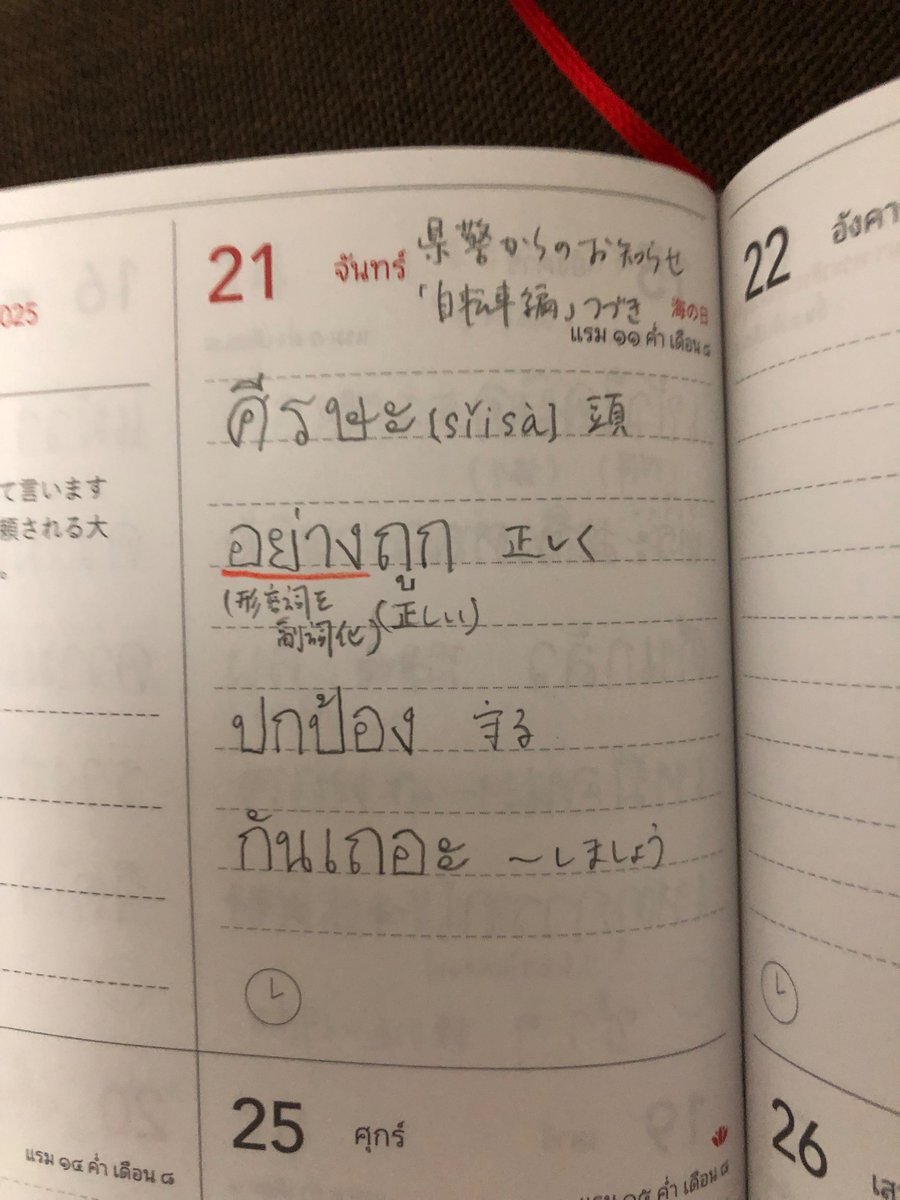 2025
て言います
頼される大
。
แรม ๑๔ ค่ำ เดือน ๘
21 จันทร์ 県警からのお知らせ
「自転車編」つづき 海の日
แรม ๑๑ ค่ำ เดือน ๘
ศีรษะ [sǐisà] 頭
อย่างถูก 正しく
(形容詞を (正しい)
副詞化)
ปกป้อง 守る
กันเถอะ ～しましょう
25 ศุกร์
แรม ๑๕ ค่ำ เดือน ๘
22 อังคา
26 เส